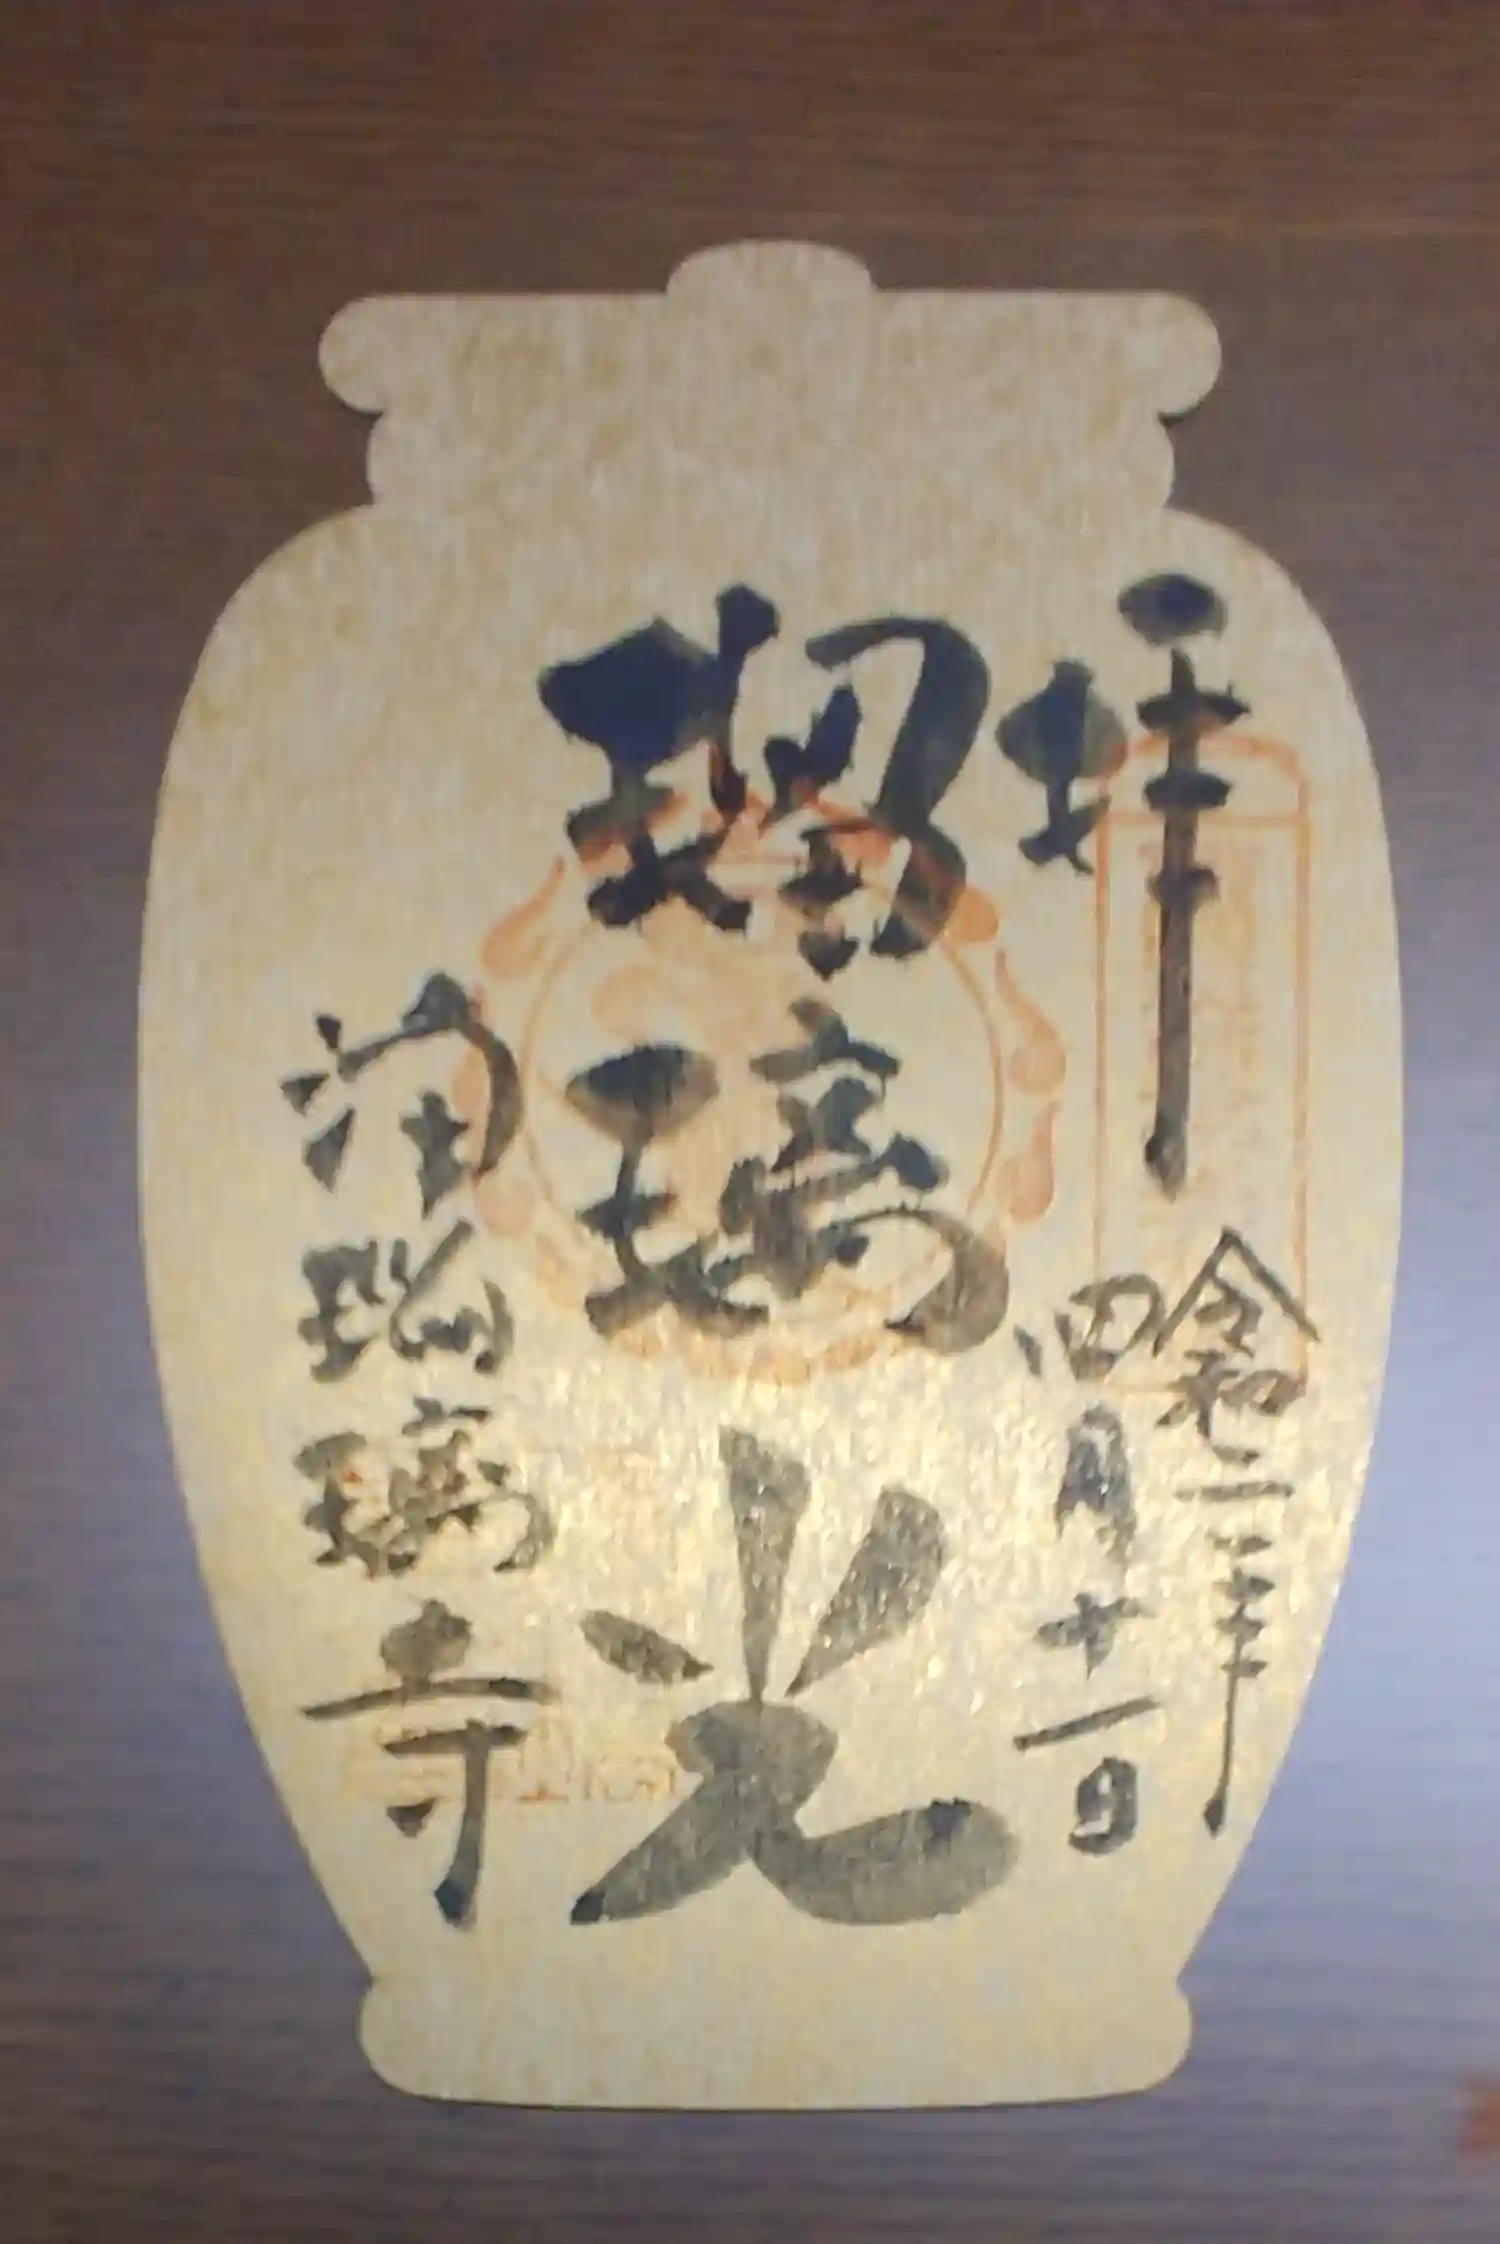 拝
令和二年
四月十一日
瑠璃光
浄瑠璃寺